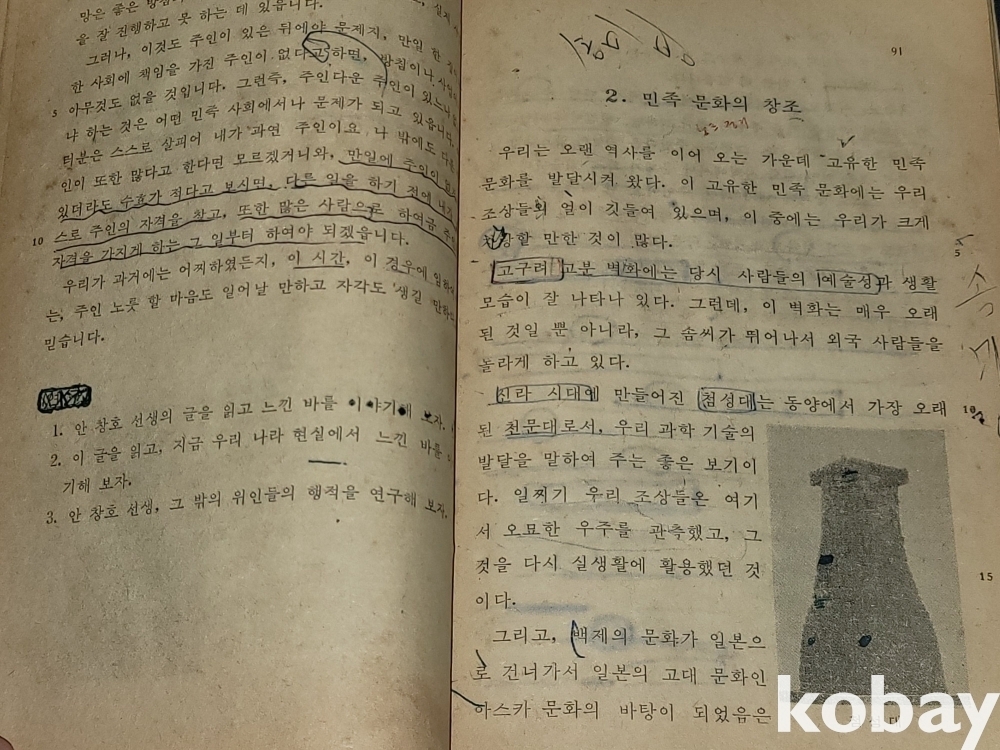 망은 좋은
을 잘 진행하고 못 하는 데 있읍니다.
그러나, 이것도 주인이 있은 뒤에야 문제지, 만일 한
한 사회에 책임을 가진 주인이 없다고 하면, 방침이나
5 아무것도 없을 것입니다. 그런즉, 주인다운 주인이 있느냐
냐 하는 것은 어떤 민족 사회에서나 문제가 되고 있읍니다.
러분은 스스로 살피어 내가 과연 주인이요, 나 밖에도
인이 또한 많다고 한다면 모르겠거니와, 만일에 주인이
있더라도 수효가 적다고 보시면, 다른 일을 하기 전에 내가
10 스로 주인의 자격을 찾고, 또한 많은 사람으로 하여금
자격을 가지게 하는 그 일부터 하여야 되겠읍니다.
우리가 과거에는 어찌하였든지, 이 시간, 이 경우에
는, 주인 노릇 할 마음도 일어날 만하고 자각도 생길
믿습니다.
1. 안 창호 선생의 글을 읽고 느낀 바를 이야기해 보자.
2. 이 글을 읽고, 지금 우리 나라 현실에서 느낀 바를
기해 보자.
3. 안 창호 선생, 그 밖의 위인들의 행적을 연구해 보자.
91
2. 민족 문화의 창조
우리는 오랜 역사를 이어 오는 가운데 고유한 민족
문화를 발달시켜 왔다. 이 고유한 민족 문화에는 우리
조상들의 얼이 깃들여 있으며, 이 중에는 우리가 크게
자랑할 만한 것이 많다.
5
고구려 고분 벽화에는 당시 사람들의 예술성과 생활
모습이 잘 나타나 있다. 그런데, 이 벽화는 매우 오래
된 것일 뿐 아니라, 그 솜씨가 뛰어나서 외국 사람들을
놀라게 하고 있다.
신라 시대에 만들어진 첨성대는 동양에서 가장 오래 10
된 천문대로서, 우리 과학 기술의
발달을 말하여 주는 좋은 보기이
다. 일찌기 우리 조상들은 여기
서 오묘한 우주를 관측했고, 그
것을 다시 실생활에 활용했던 것
이다. 15
그리고, 백제의 문화가 일본으
로 건너가서 일본의 고대 문화인
아스카 문화의 바탕이 되었음은
kobay